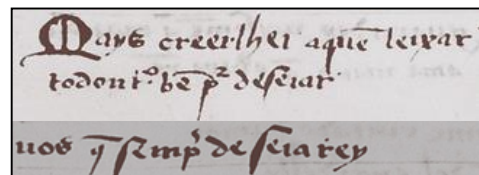 Mays creerlhei a quē leixar
todont.º bē p.ª deseiar
uos q̄ semp̃ deseiarey